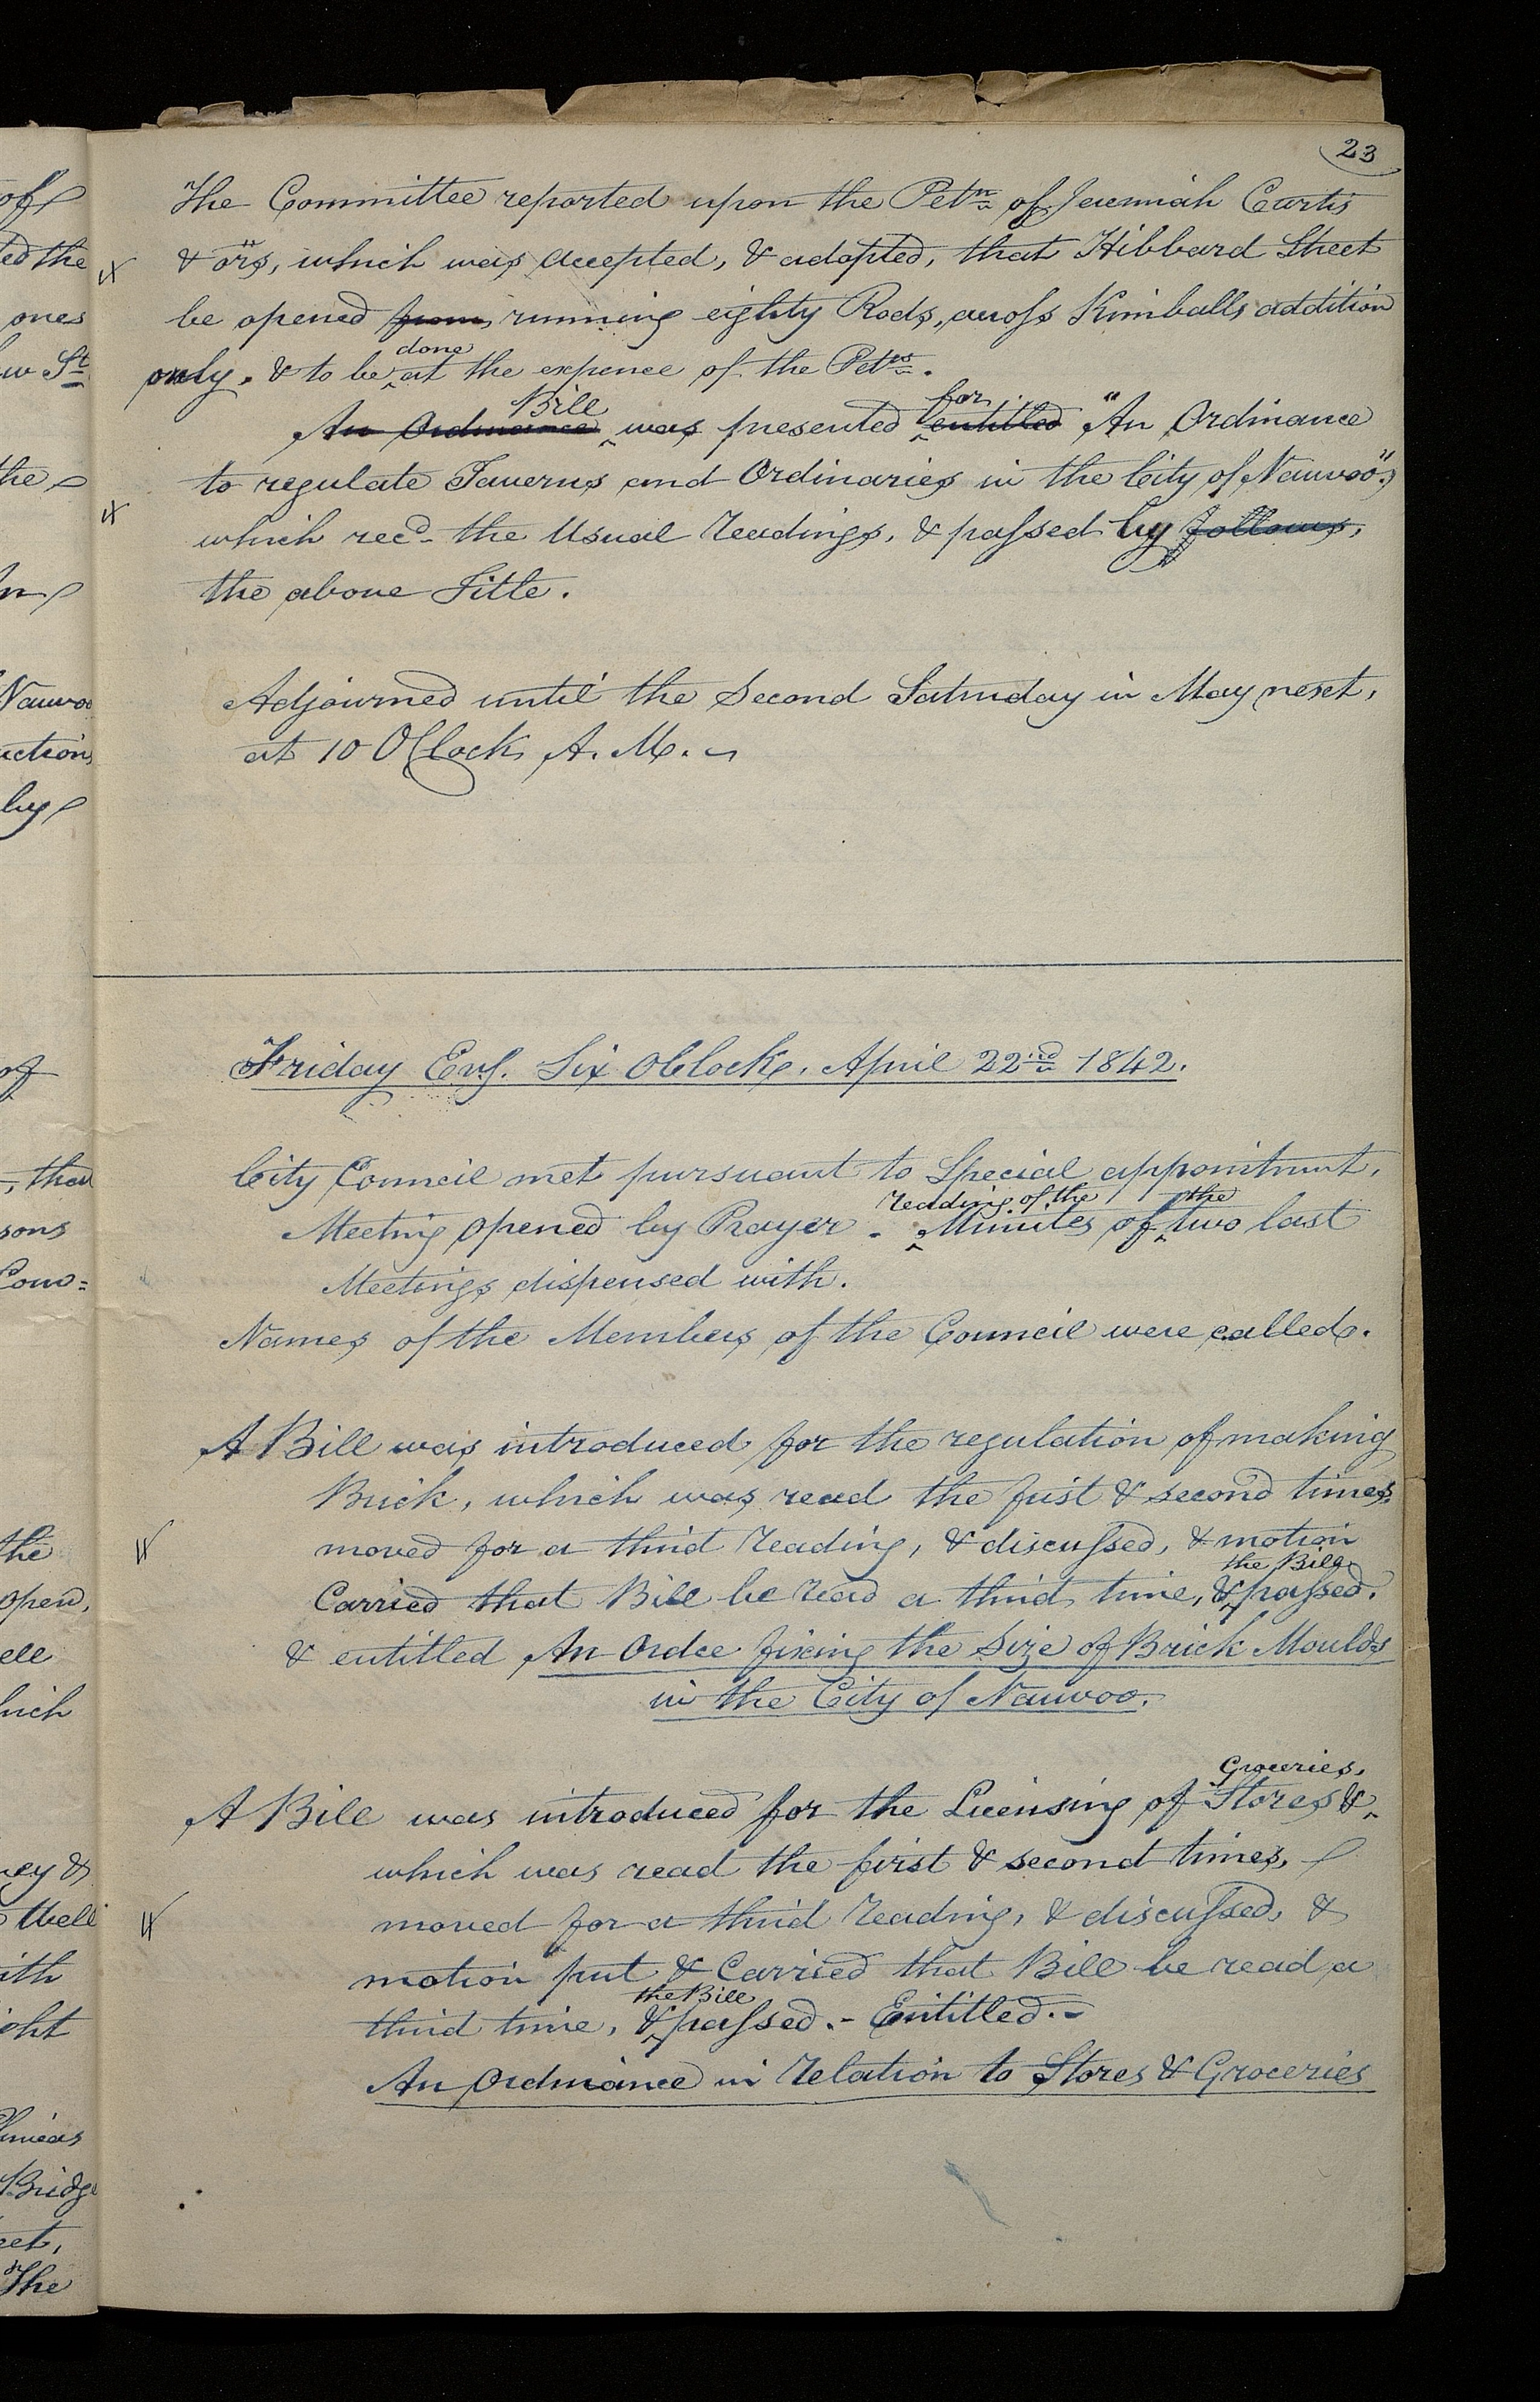 23
The Committee reported upon the Petn of Jeremiah Curtis
& ors, which was accepted, & adopted, that Hibbard Street
be opened from running eighty Rods, across Kimballs addition
done
only. & to be ^ at the expence of the Petrs.
Bill for
An Ordinance ^ was presented ^ entitled "An Ordinance
to regulate Taverns and Ordinaries in the City of Nauvoo",
which recd the Usual readings, & passed by follows,
the above Title.
Adjourned until the Second Saturday in May next,
at 10 O'Clock, A. M.
Friday Evg. Six OClock, April 22nd 1842.
City Council met pursuant to Special appointment,
reading of the the
Meeting opened by Prayer. ^ Minutes of ^ two last
Meetings dispensed with.
Names of the Members of the Council were called.
A Bill was introduced for the regulation of making
Brick, which was read the first & second times,
moved for a third reading, & discussed, & motion
the Bill
Carried that Bill be read a third time, & ^ passed.
& entitled An Ordce fixing the Size of Brick Moulds
in the City of Nauvoo.
Groceries,
A Bill was introduced for the Licensing of Stores & ^
which was read the first & second times,
moved for a third reading, & discussed, &
motion put & Carried that Bill be read a
the Bill
third time, & ^ passed.- Entitled.-
An Ordinance in relation to Stores & Groceries